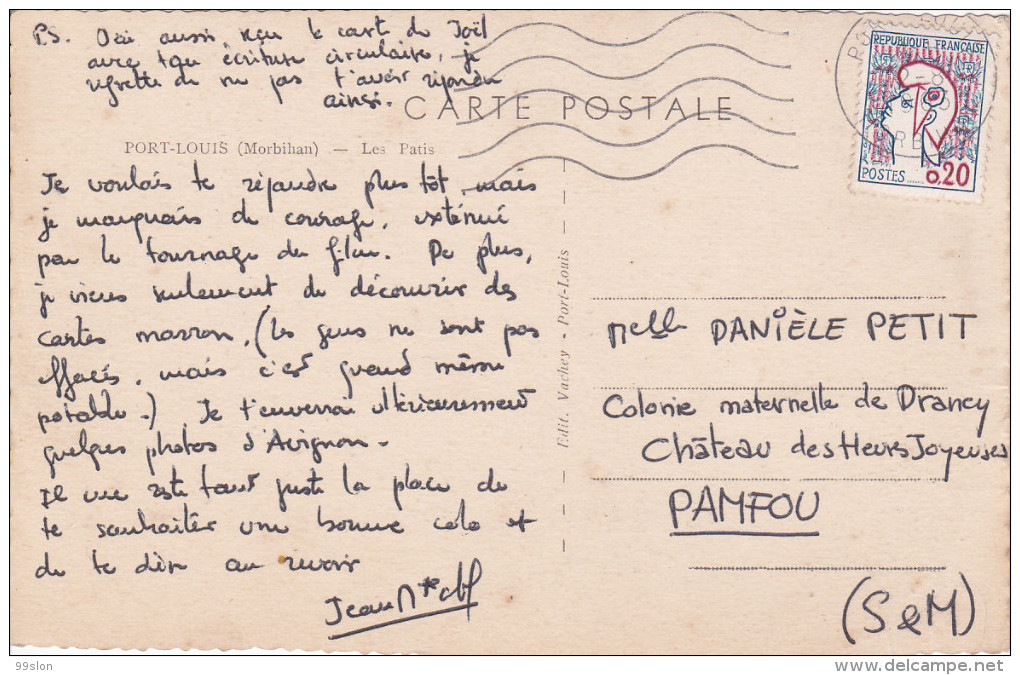 P.S. Oui aussi reçu la carte de Joël
avec ton écriture circulaire, je
regrette de ne pas t'avoir répondu
ainsi.
CARTE POSTALE
REPUBLIQUE FRANÇAISE
POSTES 0,20
PORT-LOUIS (Morbihan) — Les Patis
Je voulais te répondre plus tôt, mais
je manquais de courage, exténué
par le tournage du film. De plus,
je viens seulement de découvrir des
cartes marron, (les gens ne sont pas
effacés, mais c'est quand même
potable.) Je t'enverrai ultérieurement
quelques photos d'Avignon.
Il me reste tout juste la place de
te souhaiter une bonne colo et
de te dire au revoir
Jean
Edit. Vachey - Port-Louis
Melle DANIÈLE PETIT
Colonie maternelle de Drancy
Château des Heures Joyeuses
PAMFOU
(S & M)
99slon
delcampe.net